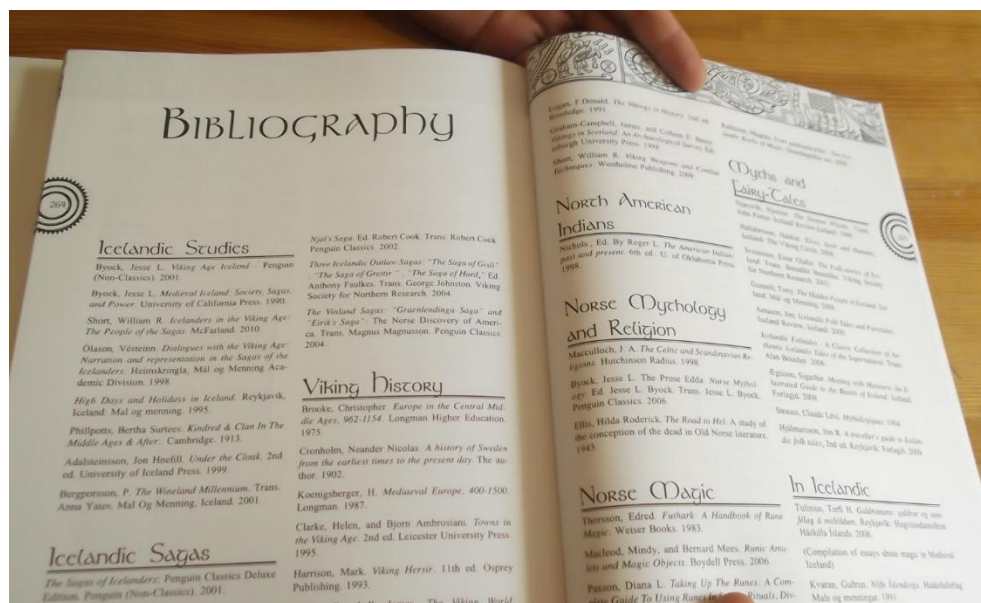 BIBLIOGRAPHY
264
Icelandic Studies
Byock, Jesse L. Viking Age Iceland . Penguin
(Non-Classics). 2001.
Byock, Jesse L. Medieval Iceland: Society, Sagas,
and Power. University of California Press. 1990.
Short, William R. Icelanders in the Viking Age:
The People of the Sagas. McFarland. 2010.
Ólason, Vésteinn. Dialogues with the Viking Age:
Narration and representation in the Sagas of the
Icelanders. Heimskringla, Mál og Menning Aca-
demic Division. 1998.
High Days and Holidays in Iceland. Reykjavik,
Iceland: Mal og menning. 1995.
Phillpotts, Bertha Surtees. Kindred & Clan In The
Middle Ages & After.. Cambridge. 1913.
Adalsteinsson, Jon Hnefill. Under the Cloak. 2nd
ed. University of Iceland Press. 1999.
Bergporsson, P. The Wineland Millennium. Trans.
Anna Yates. Mal Og Menning, Iceland. 2001.
Icelandic Sagas
The Sagas of Icelanders: Penguin Classics Deluxe
Edition. Penguin (Non-Classics). 2001.
Njal's Saga. Ed. Robert Cook. Trans. Robert Cook
Penguin Classics. 2002.
Three Icelandic Outlaw Sagas: "The Saga of Gisli"
, "The Saga of Grettir " , "The Saga of Hord," Ed.
Anthony Faulkes. Trans. George Johnston. Viking
Society for Northern Research. 2004.
The Vinland Sagas: "Graenlendinga Saga" and
"Eirik's Saga": The Norse Discovery of Ameri-
ca. Trans. Magnus Magnusson. Penguin Classics.
2004.
Viking History
Brooke, Christopher. Europe in the Central Mid-
dle Ages, 962-1154. Longman Higher Education.
1975.
Cronholm, Neander Nicolas. A history of Sweden
from the earliest times to the present day. The au-
thor. 1902.
Koenigsberger, H. Mediaeval Europe, 400-1500.
Longman. 1987.
Clarke, Helen, and Bjorn Ambrosiani. Towns in
the Viking Age. 2nd ed. Leicester University Press.
1995.
Harrison, Mark. Viking Hersir. 11th ed. Osprey
Publishing. 1993.
The Viking World
Logan, F. Donald. The Vikings in History. 2nd ed.
Routledge. 1991.
Graham-Campbell, James, and Colleen E. Batey.
Vikings in Scotland: An Archaeological Survey. Ed-
inburgh University Press. 1998.
Short, William R. Viking Weapons and Combat
Techniques. Westholme Publishing. 2009.
North American
Indians
Nichols., Ed. By Roger L. The American Indian:
past and present. 6th ed. U. of Oklahoma Press.
1998.
Norse Mythology
and Religion
Macculloch, J. A. The Celtic and Scandinavian Re-
ligions. Hutchinson Radius. 1998.
Byock, Jesse L. The Prose Edda. Norse Mythol-
ogy. Ed. Jesse L. Byock. Trans. Jesse L. Byock.
Penguin Classics. 2006.
Ellis, Hilda Roderick. The Road to Hel. A study of
the conception of the dead in Old Norse literature.
1943.
Norse Magic
Thorsson, Edred. Futhark: A Handbook of Rune
Magic. Weiser Books. 1983.
Macleod, Mindy, and Bernard Mees. Runic Amu-
lets and Magic Objects. Boydell Press. 2006.
Paxson, Diana L. Taking Up The Runes: A Com-
plete Guide To Using Runes In Rituals, Div-
Myths and
Fairy-Tales
Iceland Review, Iceland. 2008.
Icelandic Folktales : A Classic Collection of Au-
thentic Icelandic Tales of the Supernatural. Trans.
Alan Boucher.
Ægisson, Sigurður. Meeting with Monsters: An Il-
lustrated Guide to the Beasts of Iceland. Iceland:
Forlagid. 2008.
Strauss, Claude Lévi. Mythologiques. 1964.
Hjálmarsson, Jón R. A traveller's guide to Icelan-
dic folk tales, 2nd ed. Reykjavik: Forlagið. 2009.
In Icelandic
Tulinius, Torfi H. Galdramenn: galdrar og sam-
félag á miðöldum. Reykjavik: Hugvísindastofnun
Háskóla Íslands. 2008.
(Compilation of essays about magic in Medieval
Iceland)
Kvaran, Guðrun. Nöfn Íslendinga. Haskolaforlag
Mals og menningar. 1991.